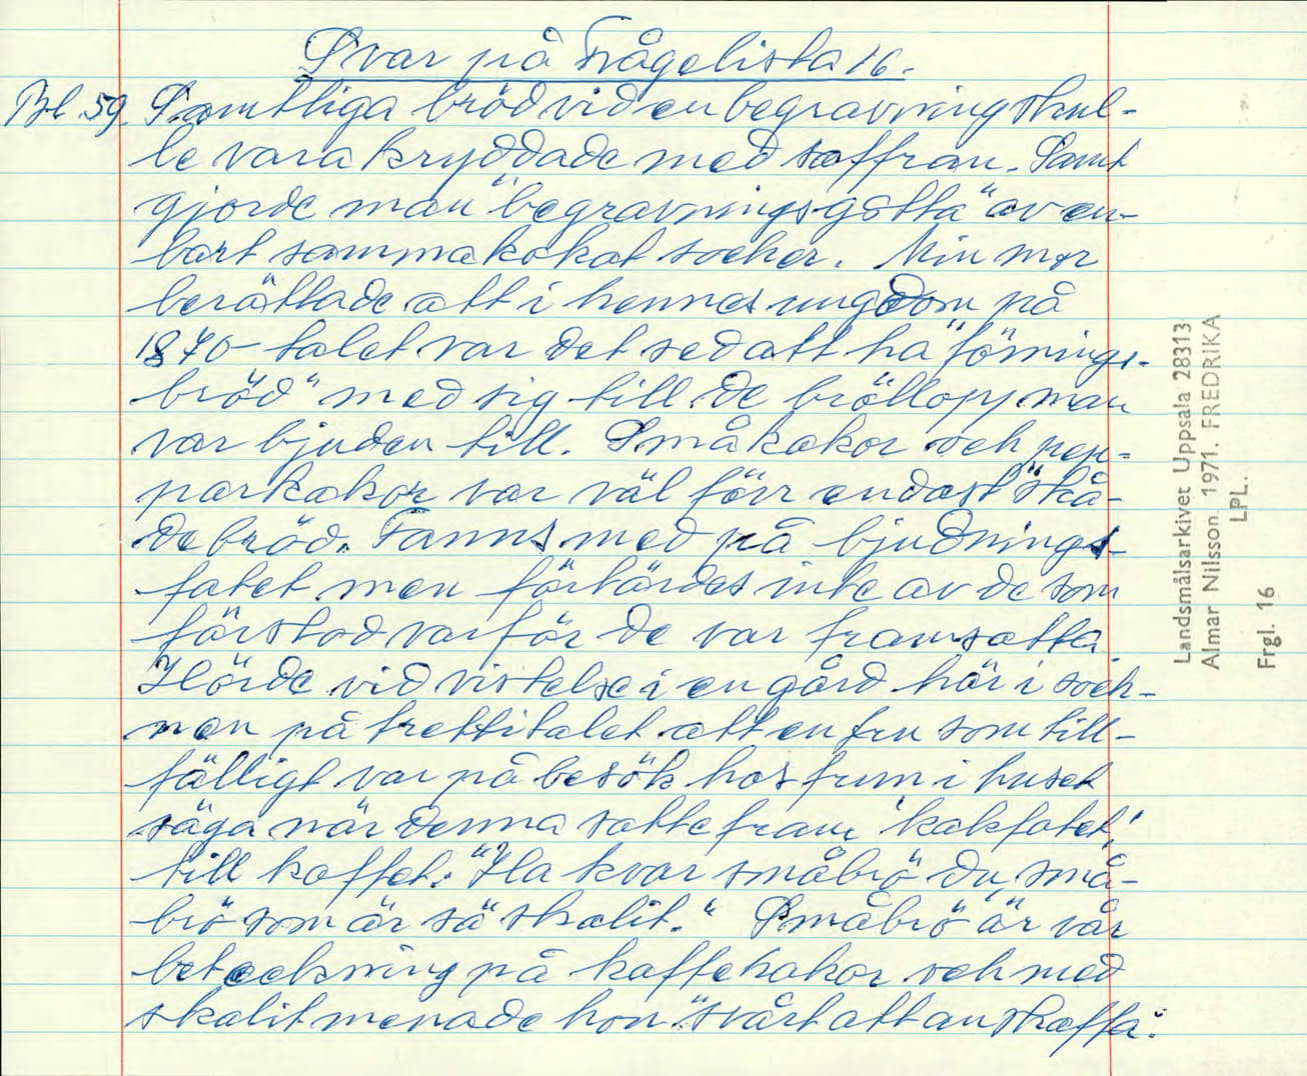 Svar på Frågelista 16.
Bl. 59. Samtliga bröd vid en begravning skul-
le vara kryddade med saffran. Samt
gjorde man "begravningsgotta" av en-
bart sammakokat socker. Min mor
berättade att i hennes ungdom på
1870-talet var det sed att ha "förnings-
bröd" med sig till de bröllopp man
var bjuden till. Småkakor och pep-
parkakor var väl förr endast "skå-
debröd". Fanns med på bjudnings-
fatet men förtärdes inte av de som
förstod varför de var framsatta.
Hörde vid vistelse i en gård här i sock-
nen på trettitalet att en fru som till-
fälligt var på besök hos frun i huset
säga när denna satte fram 'kakfatet'
till kaffet: "Ha kvar småbrö du, små-
brö som är så skalit." "Småbrö" är vår
beteckning på kaffekakor och med
skalit menade hon "svårt att anskaffa".
Landsmålsarkivet Uppsala 28313
Almar Nilsson. 1971. FREDRIKA
LPL.
Frgl. 16